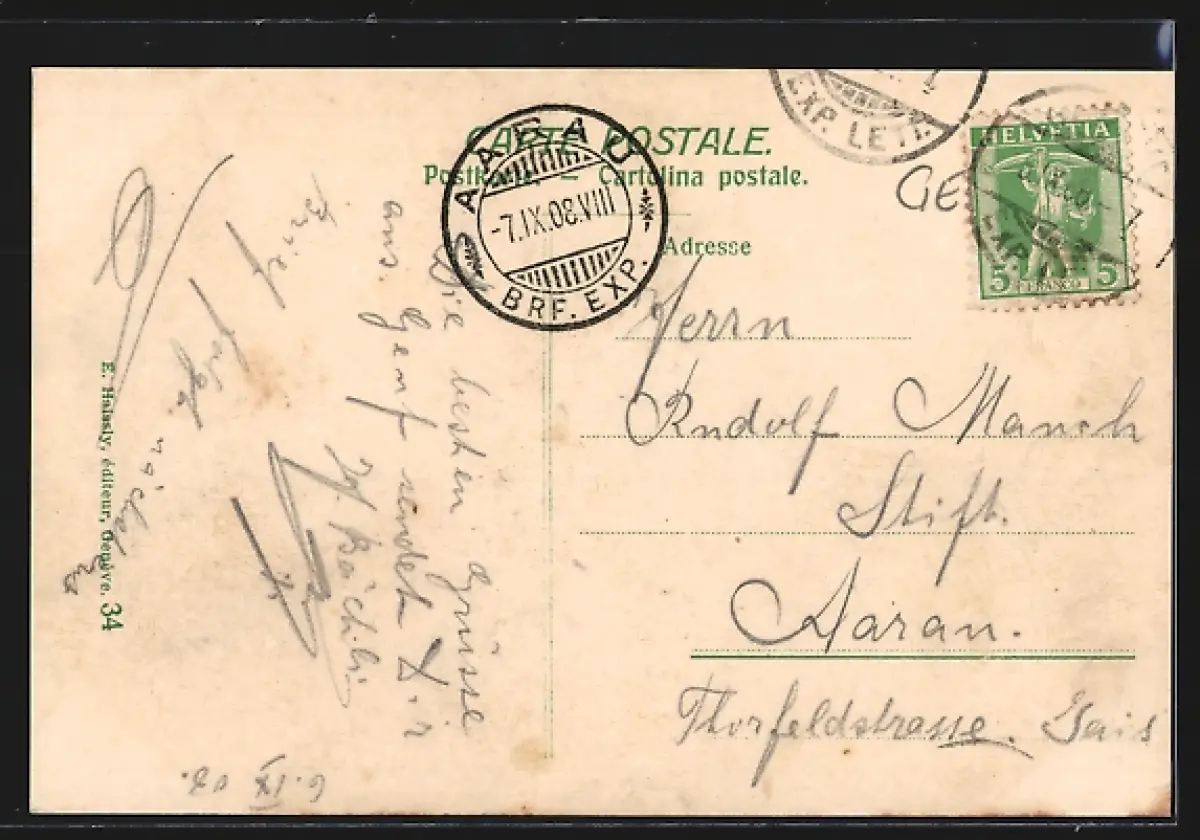 CARTE POSTALE.
Postkarte. — Cartolina postale.
Adresse
AARAU
-7.IX.08.VIII
BRF. EXP.
EXP. LETT.
GE
HELVETIA
5 FRANCO 5
Herrn
Rudolf Mauch
Stift.
Aarau.
Thorfeldstrasse. Gais
Die besten Grüsse
aus. Genf sendet Dir
Bächli
Brief folgt nächstens
6.IX 08.
E. Halasly, éditeur, Genève. 34